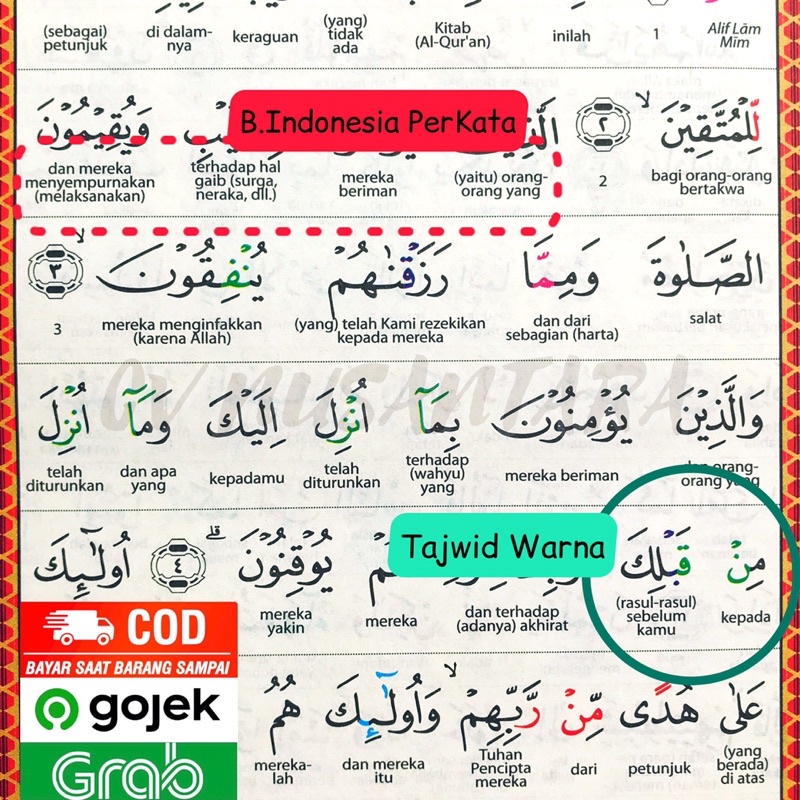 (sebagai) petunjuk di dalam-nya keraguan (yang) tidak ada Kitab (Al-Qur'an) inilah 1 Alif Lām Mīm
B.Indonesia PerKata
لِّلْمُتَّقِيْنَۙ ٢ وَيُقِيْمُوْنَ
bagi orang-orang bertakwa 2 (yaitu) orang-orang yang mereka beriman terhadap hal gaib (surga, neraka, dll.) dan mereka menyempurnakan (melaksanakan)
الصَّلٰوةَ وَمِمَّا رَزَقْنٰهُمْ يُنْفِقُوْنَۙ ٣
salat dan dari sebagian (harta) (yang) telah Kami rezekikan kepada mereka mereka menginfakkan (karena Allah) 3
CV NUSANTARA
وَالَّذِيْنَ يُؤْمِنُوْنَ بِمَآ اُنْزِلَ اِلَيْكَ وَمَآ اُنْزِلَ
dan orang-orang yang mereka beriman terhadap (wahyu) yang telah diturunkan kepadamu dan apa yang telah diturunkan
Tajwid Warna
مِنْ قَبْلِكَ يُوْقِنُوْنَۗ ٤ اُولٰۤىِٕكَ
kepada (rasul-rasul) sebelum kamu dan terhadap (adanya) akhirat mereka mereka yakin
عَلٰى هُدًى مِّنْ رَّبِّهِمْۙ وَاُولٰۤىِٕكَ هُمُ
(yang berada) di atas petunjuk dari Tuhan Pencipta mereka dan mereka itu mereka-lah
COD
BAYAR SAAT BARANG SAMPAI
gojek
Grab